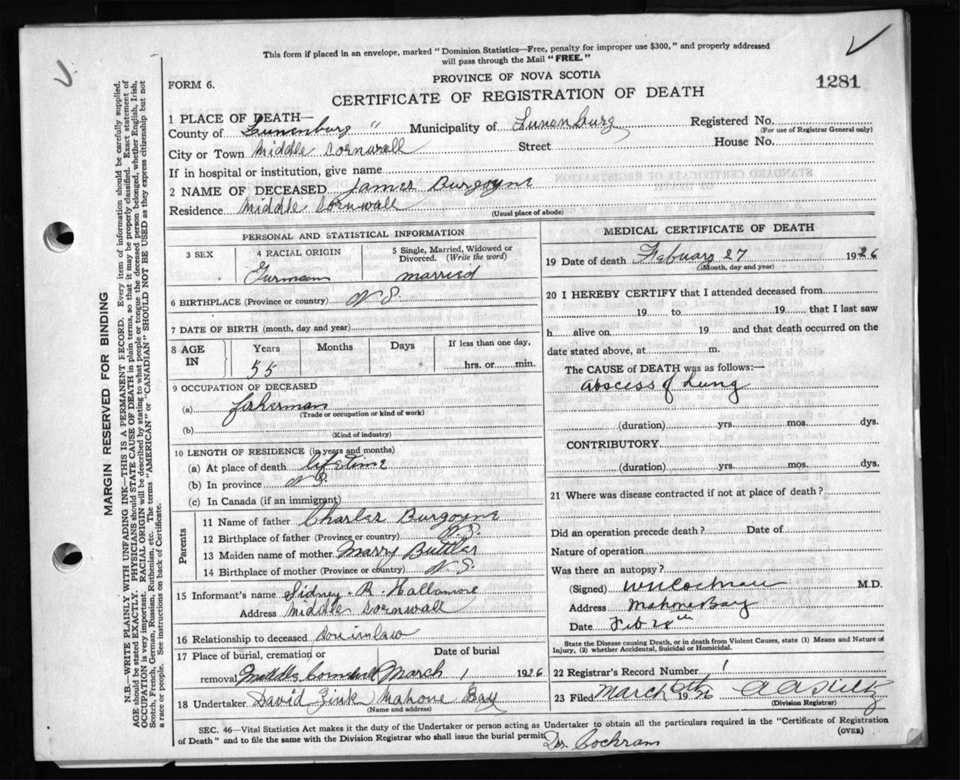 This form if placed in an envelope, marked "Dominion Statistics—Free, penalty for improper use $300," and properly addressed
will pass through the Mail "FREE."
FORM 6.
PROVINCE OF NOVA SCOTIA
1281
CERTIFICATE OF REGISTRATION OF DEATH
1 PLACE OF DEATH—
County of Lunenburg " Municipality of Lunenburg Registered No.
(For use of Registrar General only)
City or Town Middle Cornwall Street House No.
If in hospital or institution, give name
2 NAME OF DECEASED James Burgoyne
Residence Middle Cornwall
(Usual place of abode)
PERSONAL AND STATISTICAL INFORMATION
3 SEX
4 RACIAL ORIGIN
5 Single, Married, Widowed or
Divorced. (Write the word)
Gurmann married
6 BIRTHPLACE (Province or country) N S.
7 DATE OF BIRTH (month, day and year)
8 AGE IN
Years Months Days If less than one day,
55 hrs. or min.
9 OCCUPATION OF DECEASED
(a) fisherman
(Trade or occupation or kind of work)
(b)
(Kind of industry)
10 LENGTH OF RESIDENCE (in years and months)
(a) At place of death lifetime
(b) In province N S.
(c) In Canada (if an immigrant)
Parents
11 Name of father Charles Burgoyne
12 Birthplace of father (Province or country) N.S.
13 Maiden name of mother Mary Buttler
14 Birthplace of mother (Province or country) N S.
15 Informant's name Sidney R. Hallamore
Address Middle Cornwall
16 Relationship to deceased Soninlaw
17 Place of burial, cremation or
Date of burial
removal Middle Cornwall March 1 1926
18 Undertaker David Zink Mahone Bay
(Name and address)
MEDICAL CERTIFICATE OF DEATH
19 Date of death Febuary 27 1926
(Month, day and year)
20 I HEREBY CERTIFY that I attended deceased from
19 to 19 that I last saw
h alive on 19 and that death occurred on the
date stated above, at m.
The CAUSE of DEATH was as follows:—
abscess of Lung
(duration) yrs. mos. dys.
CONTRIBUTORY
(duration) yrs. mos. dys.
21 Where was disease contracted if not at place of death?
Did an operation precede death? Date of
Nature of operation
Was there an autopsy?
(Signed) M.D.
Address Mahone Bay
Date Feb 28th
State the Disease causing Death, or in death from Violent Causes, state (1) Means and Nature of
Injury, (2) whether Accidental, Suicidal or Homicidal.
22 Registrar's Record Number 1
23 Filed March 1926
(Division Registrar)
SEC. 46—Vital Statistics Act makes it the duty of the Undertaker or person acting as Undertaker to obtain all the particulars required in the "Certificate of Registration
of Death" and to file the same with the Division Registrar who shall issue the burial permit.
(OVER)
Dr. Cochran
MARGIN RESERVED FOR BINDING
N.B.—WRITE PLAINLY WITH UNFADING INK—THIS IS A PERMANENT RECORD. Every item of information should be carefully supplied.
AGE should be stated EXACTLY. PHYSICIANS should STATE CAUSE OF DEATH in plain terms, so that it may be properly classified. Exact statement of
OCCUPATION is very important. RACIAL ORIGIN will be described by stating to what people or tongue the deceased person belonged, whether English, Irish,
Scotch, French, German, Russian, Ruthenian, etc. The terms "AMERICAN" or "CANADIAN" SHOULD NOT BE USED as they express citizenship but not
a race or people. See instructions on back of Certificate.